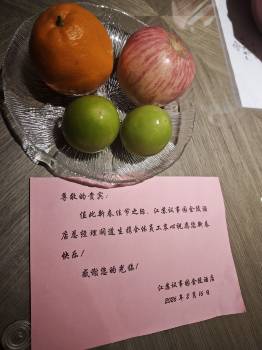 尊敬的贵宾：
值此新春佳节之际，江苏议事园金陵酒
店总经理道生携全体员工衷心祝愿您新春
快乐！
感谢您的光临！
江苏议事园金陵酒店
2026 年 2 月 16 日